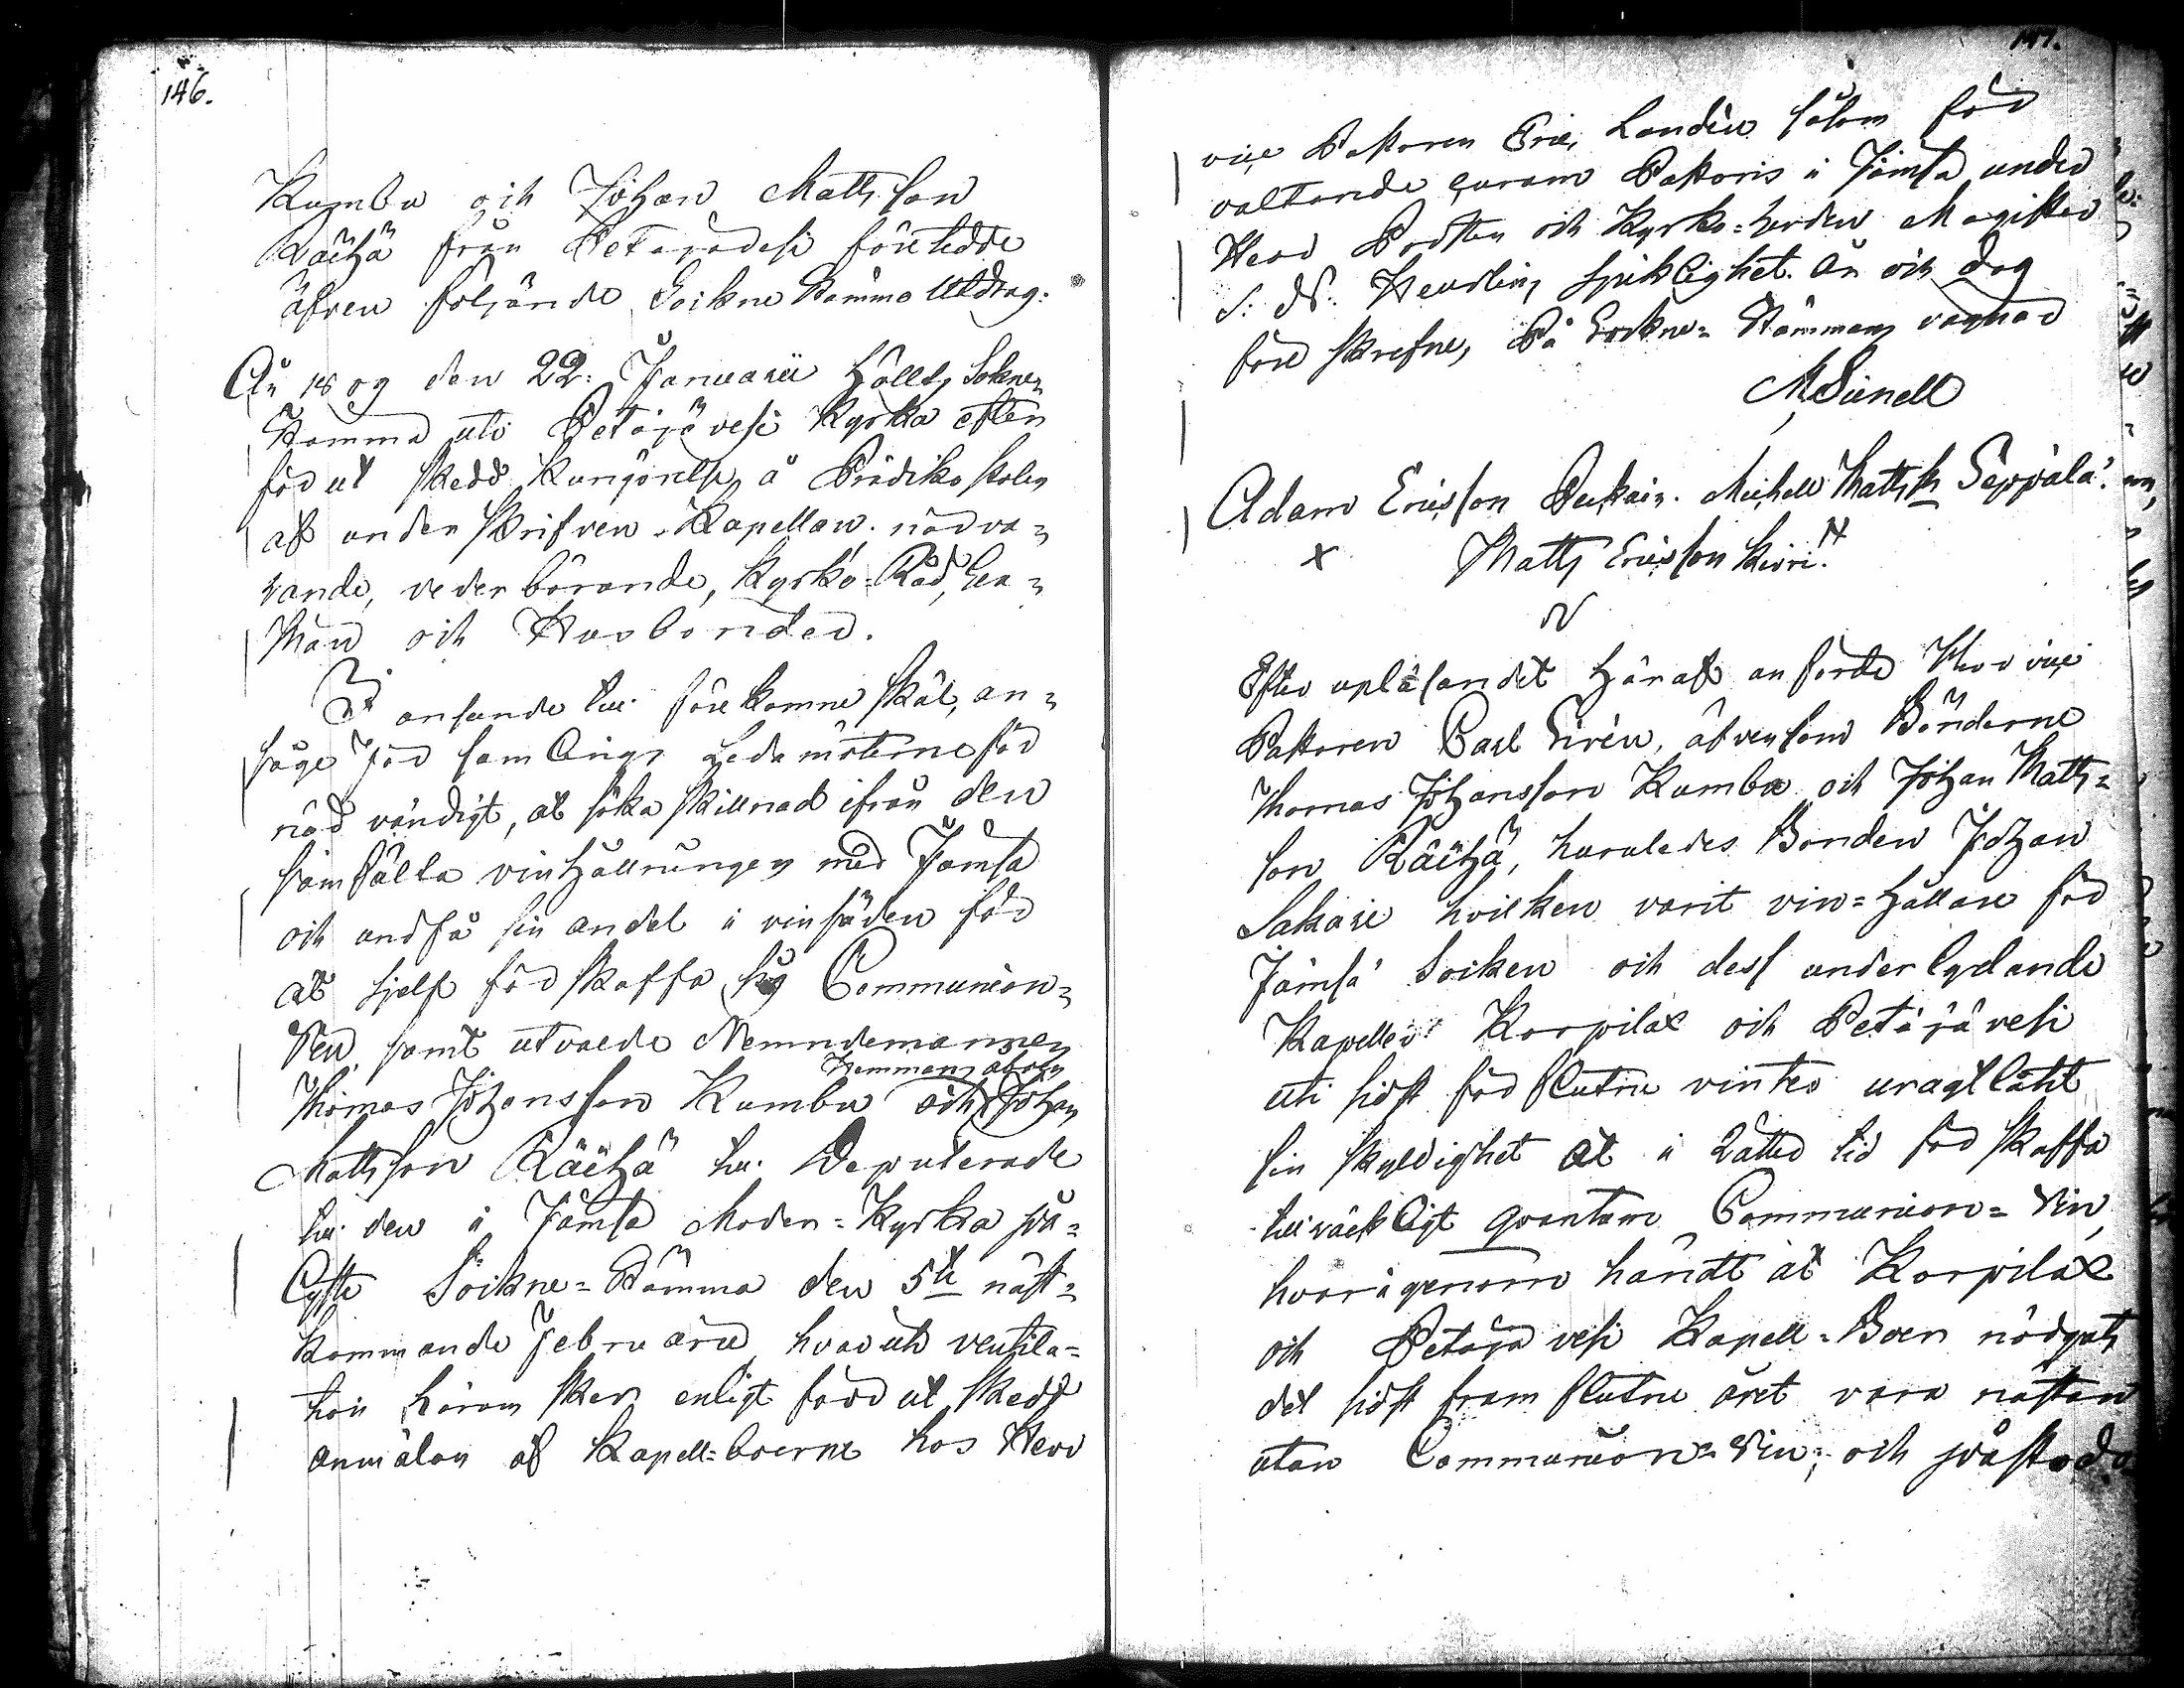 146.
Kumbu och Johan Mattsson
Räihä från Petäjävesi företedde
äfven följande Sockne Stämmo Utdrag:
År 1809 den 22: Januarii hölts Sokne-
Stämma uti Petäjävesi Kyrka efter
förut skedd kungörelse å Prediko stolen
af under skrifven Kapellan. närva-
rande, vederbörande, Kyrko-Råd, Sex-
män och Husbönder.
I anseende till förekomne skäl, an-
såge för samlings Ledamöterne för
nöd vändigt, at söka skillnad ifrån den
samfälta vinhållningen med Jämsä
och undfå sin andel i vinsäden för
at sjelf förskaffa sig Communion-
Vin, samt utvalde Nemndemannen
Thomas Johansson Kumbu och Hemmans åboen Johan
Mattsson Räihä till Deputerade
till den i Jämsä Moder-Kyrka på-
lyste Sockne-Stämma den 5te näst-
kommande Februarii hvaruti ventila-
tion härom sker enligt förut skedd
anmälan af Kapell-boerne hos Herr
147.
vice Pastoren Eric Londén såsom för
valtande curam Pastoris i Jämsä under
Herr Prosten och Kyrko-herden Magister
sjuklighet. År och dag
före skrefne, På Sockne-Stämmans vägnar
M Sirnell
Adam Ericsson Michell Matts Seppälä.
x Matts Ericsson Kivri.
N
Efter upläsandet häraf anförde Herr vice
Pastoren Carl Sirén, äfvensom Bönderne
Thomas Johansson Kumbu och Johan Matts-
son Räihä, huruledes Bonden Johan
Sakari hvilken varit vin-hållare för
Jämsä Socken och dess underlydande
Kapeller Korpilax och Petäjävesi
uti sidst förflutne vinter uraktlåtit
sin skyldighet at i rättan tid förskaffa
tillräckligt quantum Communion-Vin,
hvarigenom händt at Korpilax
och Petäjävesi Kapell-Boer nödgats
det sidst framflutne året vara nästan
utan Communion-Vin; och påstodo